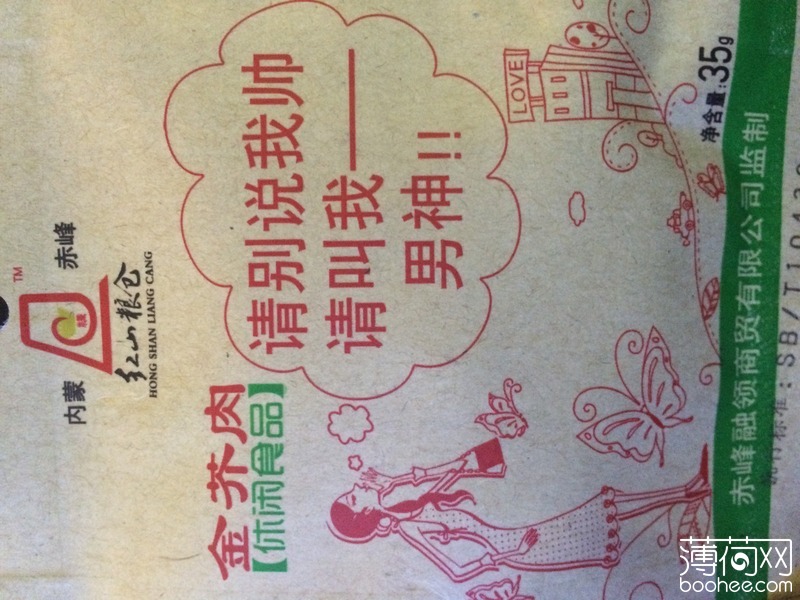 TM
内蒙 赤峰
红山粮仓
HONG SHAN LIANG CANG
金芥肉
【休闲食品】
请别说我帅
请叫我——
男神!!
LOVE
净含量:35g
赤峰融领商贸有限公司监制
执行标准:SB/T10439
薄荷网
boohee.com